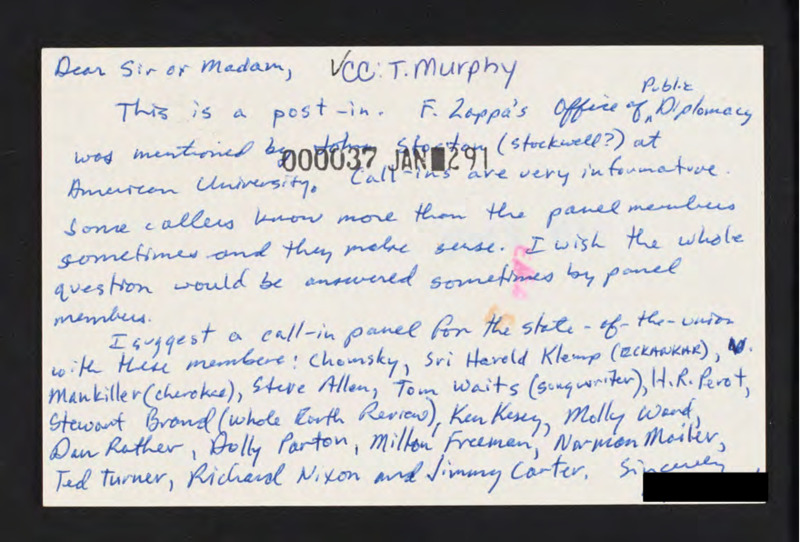 Dear Sir or Madam, √CC: T. Murphy
This is a post-in. F. Zappa's Office of Public Diplomacy
was mentioned by John Stockton (stockwell?) at
000037 JAN 291
American University. Call-ins are very informative.
Some callers know more than the panel members
sometimes and they make sense. I wish the whole
question would be answered sometimes by panel
members.
I suggest a call-in panel for the state-of-the-union
with these members: Chomsky, Sri Harold Klemp (ECKANKAR), W.
Mankiller (cherokee), Steve Allen, Tom Waits (songwriter), H.R. Perot,
Stewart Brand (Whole Earth Review), Ken Kesey, Molly Ward,
Dan Rather, Dolly Parton, Milton Freeman, Norman Mailer,
Ted Turner, Richard Nixon and Jimmy Carter. Sincerely,